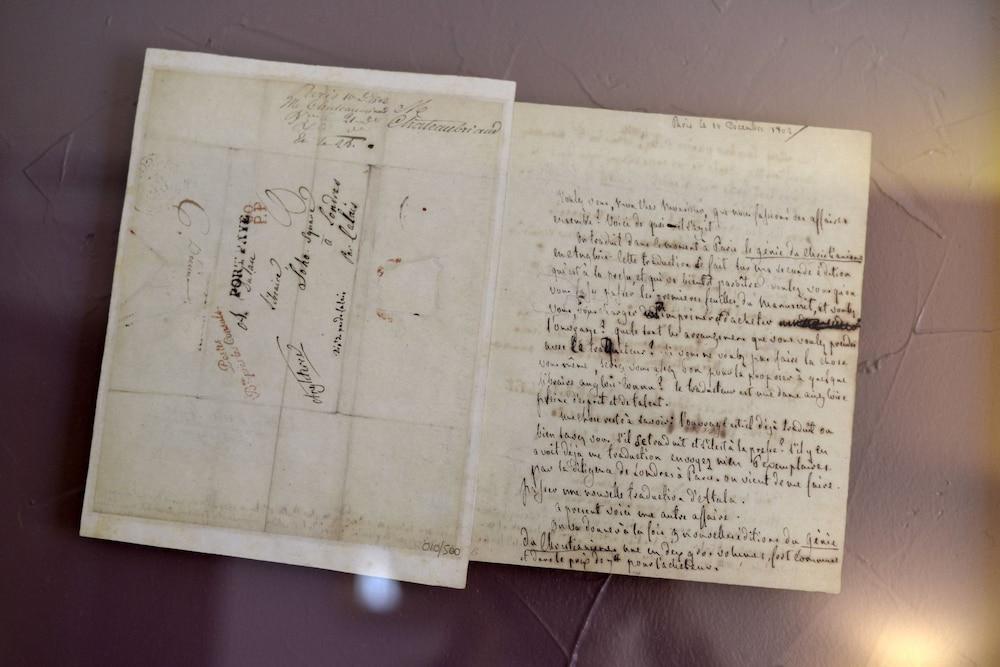 Paris 10
Chateaubriand
PORT PAYÉ
P.P.
A
Dulau
Libraire
Soho Square
à Londres
par Calais
Angleterre
010/500
Paris le 14 Décembre 1802
Voulez vous, mon cher Monsieur, que nous fassions des affaires
ensemble? Voici de quoi il s'agit.
On traduit dans ce moment à Paris le génie du Christianisme
en Anglois. Cette traduction se fait sur ma seconde édition
qui est à la presse, et qui va bientôt paroître. voulez vous que
les premières feuilles du Manuscrit, et voulez
vous, vous charger d'imprimer et d'acheter
l'ouvrage? quels sont les arrangemens que vous voulez prendre
avec le traducteur? Si vous ne voulez pas faire la chose
vous même, seriez vous assez bon pour la proposer à quelque
libraire anglois connu? le traducteur est une dame angloise
pleine d'esprit et de talent.
une chose reste à savoir: l'ouvrage est il déjà traduit ou
bien savez vous s'il se traduit et s'il est à la presse? s'il y en
avoit déjà une traduction envoyez m'en exemplaires
par la diligence de Londres à Paris. on vient de me faire
passer une nouvelle traduction d'Atala.
a présent voici une autre affaire.
on va donner à la fois 2 nouvelles éditions du génie
du Christianisme une en deux gros volumes, fort commune
et dans le prix de 7 pour l'acheteur.